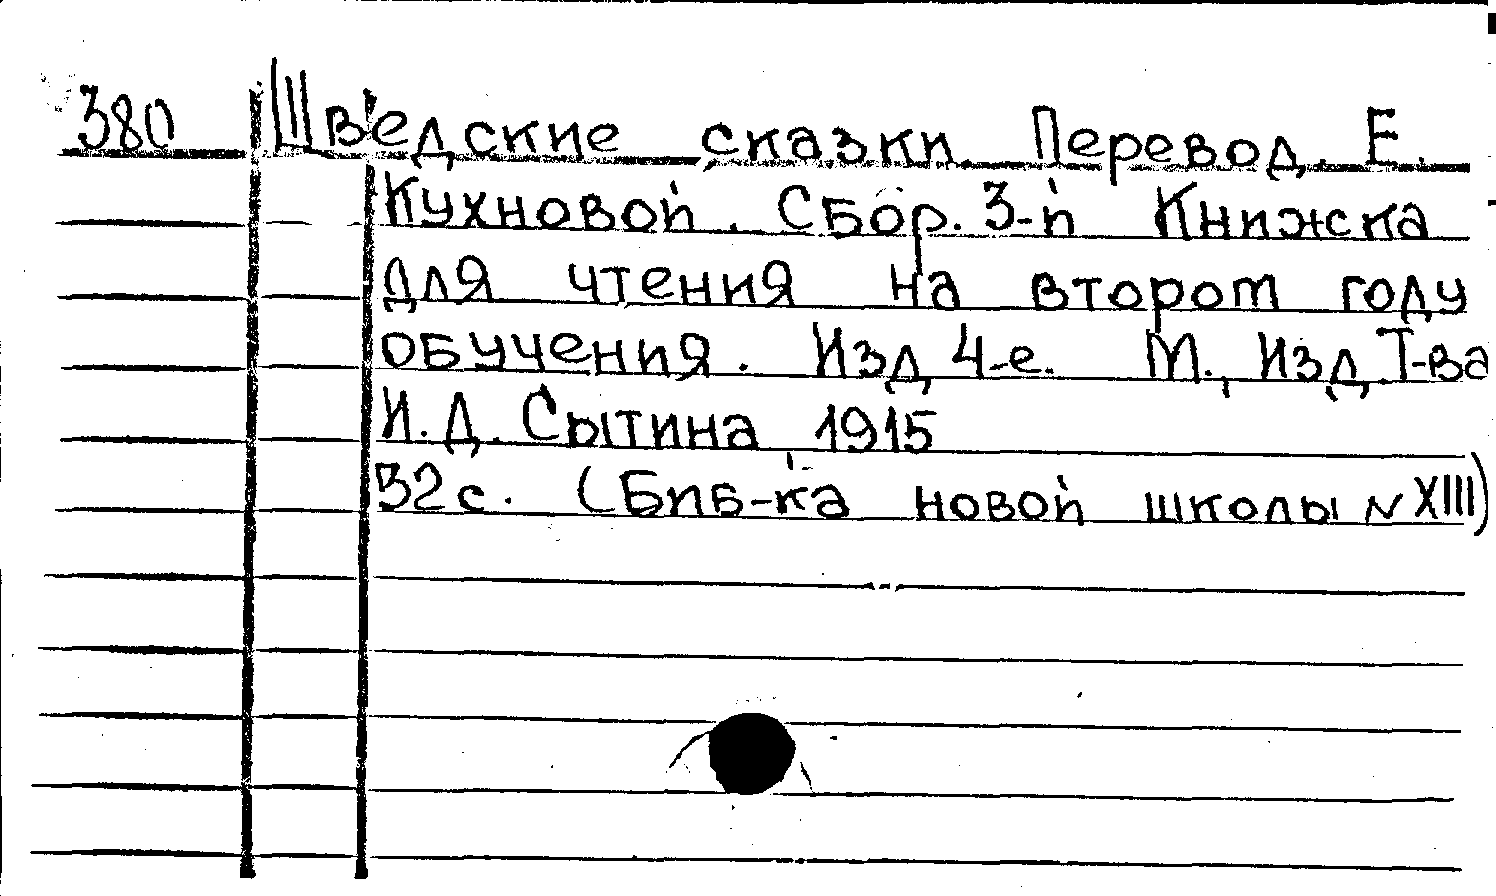 380 Шведские сказки Перевод. Е.
Кухновой. Сбор. 3-й Книжка
для чтения на втором году
обучения. Изд 4-е. М., Изд Т-ва
И. Д. Сытина 1915
32с. (Биб-ка новой школы N XIII)